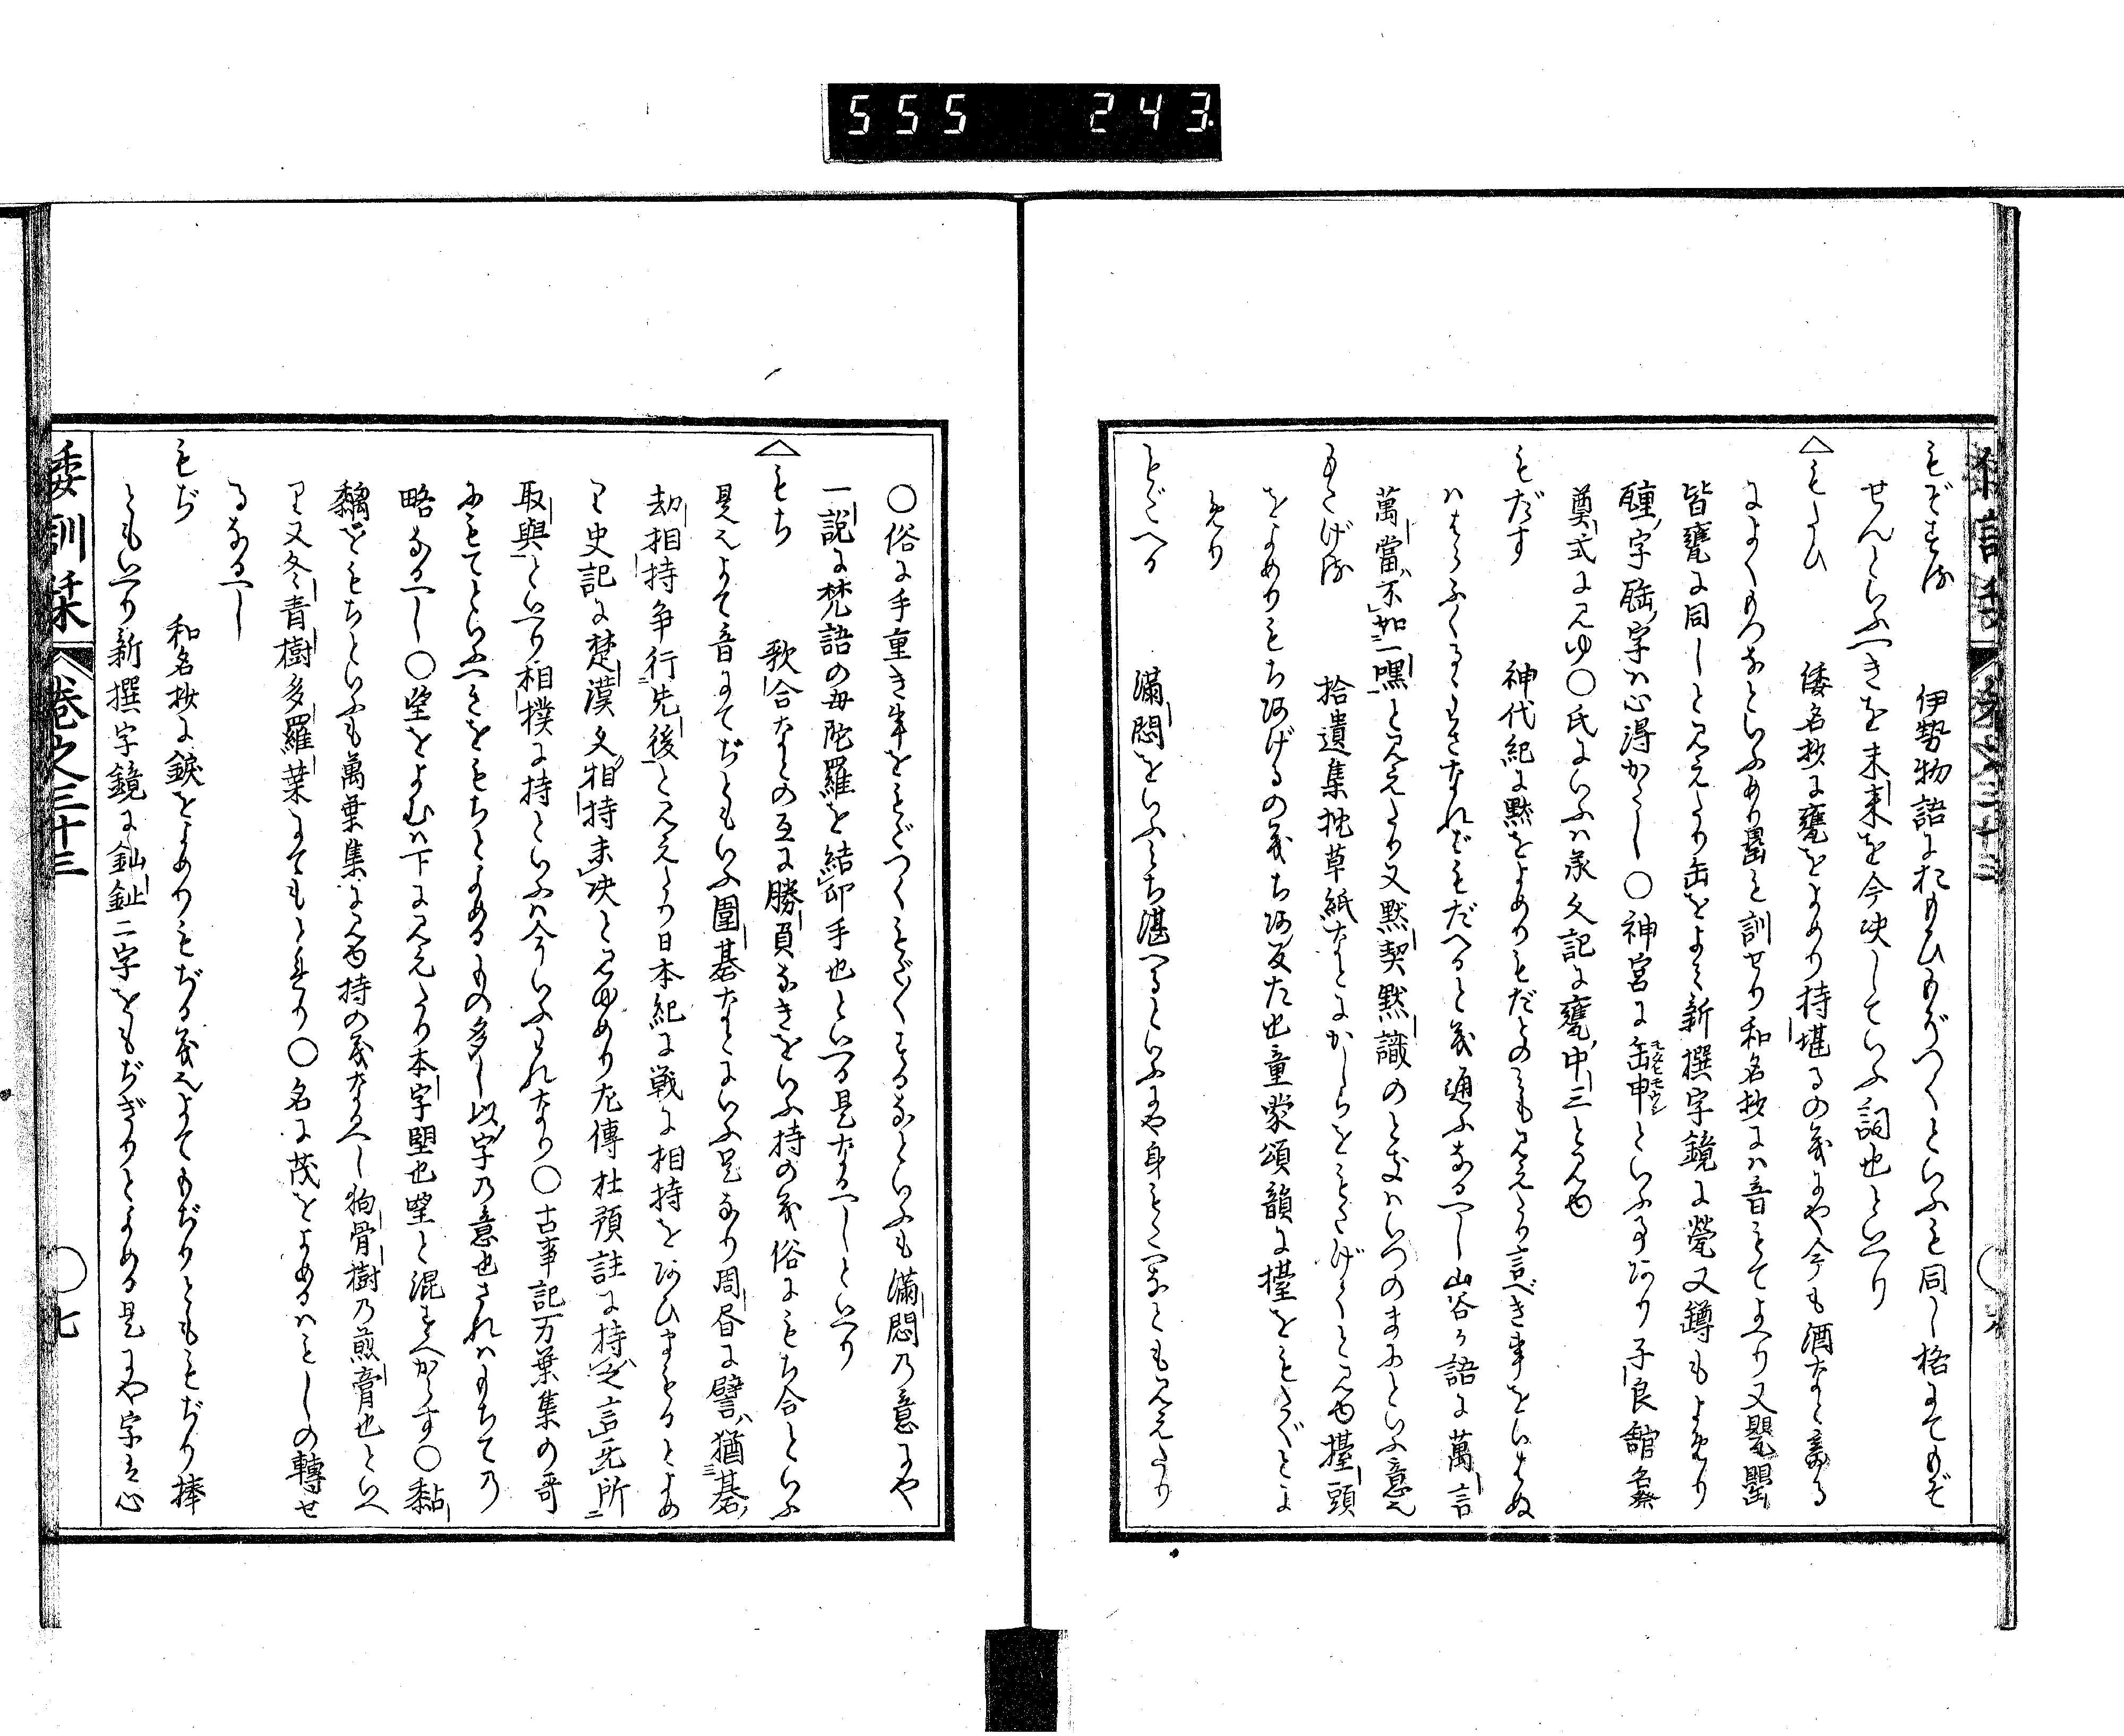 555 243.
もぞする　伊勢物語におもひもぞつくといふも同し格にてもぞ
せんといふへきを未来を今决していふ詞也といへり
△もたひ　倭名抄に甕をよめり持堪るの義にや今も酒なと
によくもつなといふめり罌も訓せり和名抄には音もてよへり又甖罌
皆甕に同しと見えたり缶をよみ新撰字鏡に罃又罇もよめり
字は心得かたし○神宮に缶申といふ事あり子良舘
奠式に見ゆ○氏にいふは承久記に甕中三と見ゆ
もだす　神代紀に黙をよめりもだとのみも見えたり言べき事をいはぬ
ははらふくるゝわさなれどもだへると義通ふなるへし山谷か語に萬言
萬當不如一嘿と見えたり又黙契黙識のときはいつのまにといふ意也
もたげる　拾遺集枕草紙なとにかしらをもたげてと見ゆ擡頭
をよめりもちあげるの義ちあ反た也童蒙頌韻に擡をもたぐとよ
めり
もどへる　滿悶をいふもち湛へるといふにや身もたへなとも見えたり
○俗に手重き事をもどつくもだくするなといふも滿悶乃意にや
一説に梵語の毋陀羅を結印手也といへる是なるへしといへり
△もち　歌合なとの互に勝負なきをいふ持の義俗にもち合といふ
是也よて音にてぢともいふ圍碁なとにいふ是なり周易に譬猶碁
劫相持争行先後と見えたり日本紀に戦に相持をあひまもるとよめ
り史記に楚漢久相持未决と見ゆめり左傳杜預註に持之言无所
取與といへり相撲に持といふは今いふわれなり○古事記万葉集の哥
にもてといふへきをもちとよめるもの多し以字乃意也されはもちての
略なるへし○望をよむは下に見えたり本字朢也望と混すへからす○黏
黐をもちといふも萬葉集に見ゆ持の義なるへし狗骨樹乃煎膏也といへ
り又冬青樹多羅葉にてもとれり○名に茂をよめるはもしの轉せ
るなるへし
もぢ　和名抄に錑をよめりもぢる義也よてもぢりとももぢり捧
ともいへり新撰字鏡に釓鉦二字をもぢぎりとよめる是にや字は心
倭訓栞　巻之三十三　○七